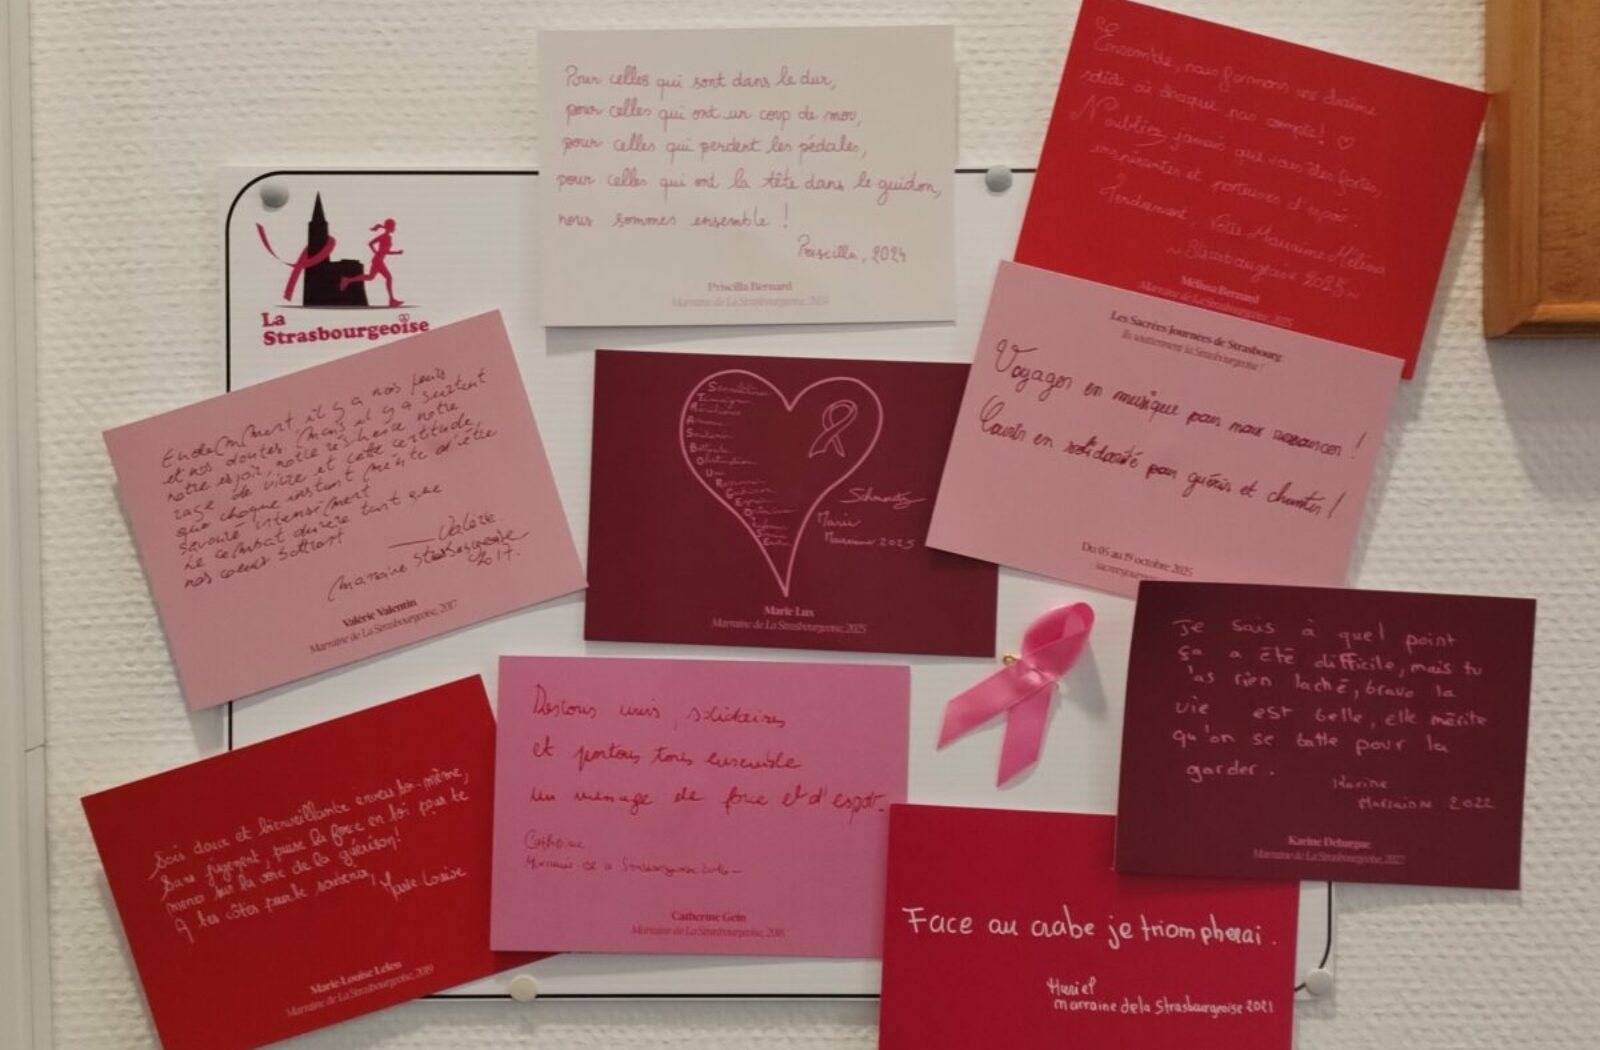 Pour celles qui sont dans le dur,
pour celles qui ont un coup de mou,
pour celles qui perdent les pédales,
pour celles qui ont la tête dans le guidon,
nous sommes ensemble !
Priscilla, 2024
Priscilla Bernard
Marraine de La Strasbourgeoise, 2024
Ensemble, nous formons une chaîne
solide où chaque pas compte ! ♡
N'oubliez jamais que vous êtes fortes,
inspirantes et porteuses d'espoir.
Tendrement, Votre Marraine Mélissa
~ Strasbourgeoise 2025 ~
Mélissa Bernard
Marraine de La Strasbourgeoise, 2025
La
Strasbourgeoise
Les Sacrées Journées de Strasbourg
ils soutiennent la Strasbourgeoise !
Voyager en musique pour nous ressourcer !
Courir en solidarité pour guérir et chanter !
Du 05 au 19 octobre 2025
Evidemment, il y a nos peurs
et nos doutes mais il y a surtout
notre espoir, notre résilience notre
rage de vivre et cette certitude
que chaque instant mérite d'être
savouré intensément
Le combat durera tant que
nos coeurs battront
Valérie
Marraine Strasbourgeoise
2017.
Valérie Valentin
Marraine de La Strasbourgeoise, 2017
Schmaltz
Marie
Marraine 2025
Marie Lux
Marraine de La Strasbourgeoise, 2025
Je sais à quel point
ça a été difficile, mais tu
n'as rien laché, bravo la
vie est belle, elle mérite
qu'on se batte pour la
garder.
Karine
Marraine 2022
Karine Deburgue
Marraine de La Strasbourgeoise, 2022
Restons unis, solidaires
et portons tous ensemble
un message de force et d'espoir.
Catherine
Marraine de la Strasbourgeoise 2016
Catherine Gein
Marraine de La Strasbourgeoise, 2016
Sois douce et bienveillante envers toi-même,
Sans jugement, puise la force en toi pour te
mener sur la voie de la guérison!
A tes côtés par le soutien,
Marie Louise
Marie-Louise Lelen
Marraine de La Strasbourgeoise, 2019
Face au crabe je triompherai.
Muriel
marraine de la Strasbourgeoise 2021